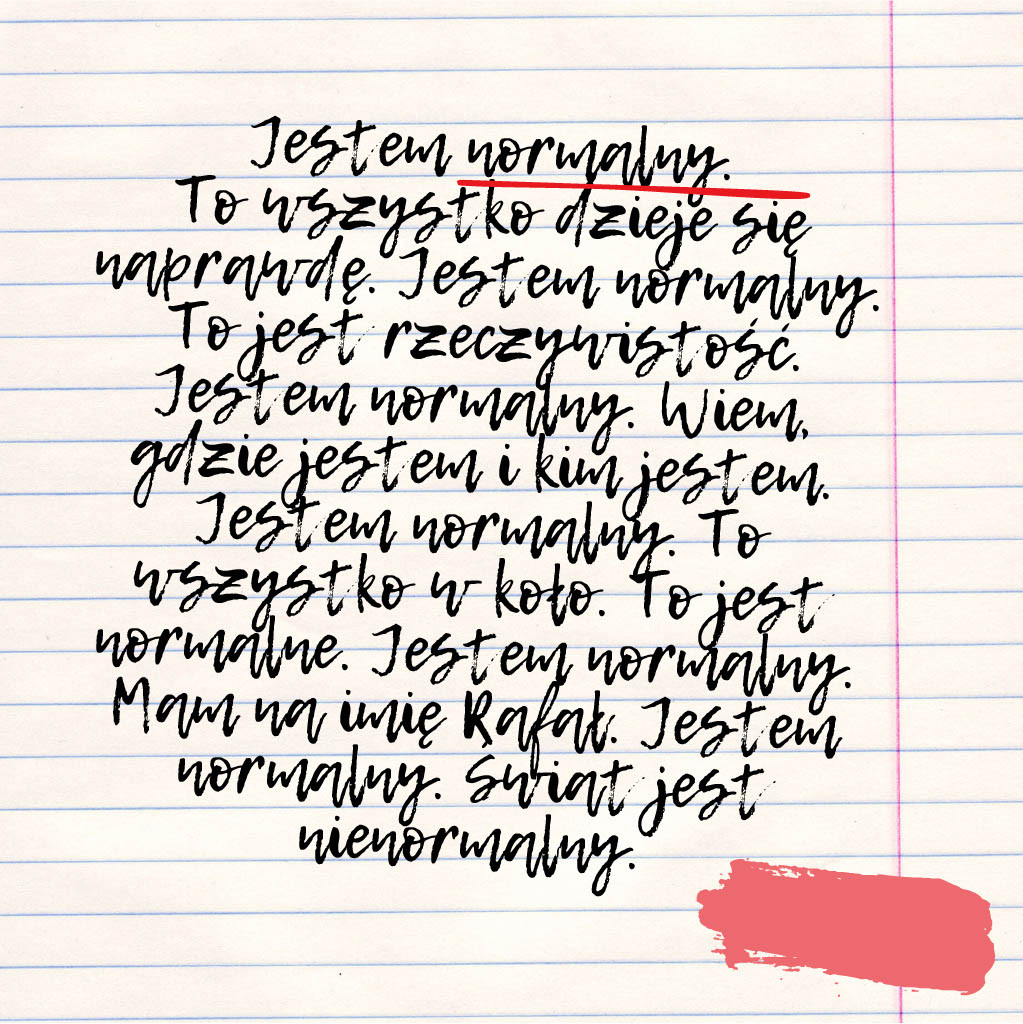 Jestem normalny.
To wszystko dzieje się
naprawdę. Jestem normalny.
To jest rzeczywistość.
Jestem normalny. Wiem,
gdzie jestem i kim jestem.
Jestem normalny. To
wszystko w koło. To jest
normalne. Jestem normalny.
Mam na imię Rafał. Jestem
normalny. Świat jest
nienormalny.